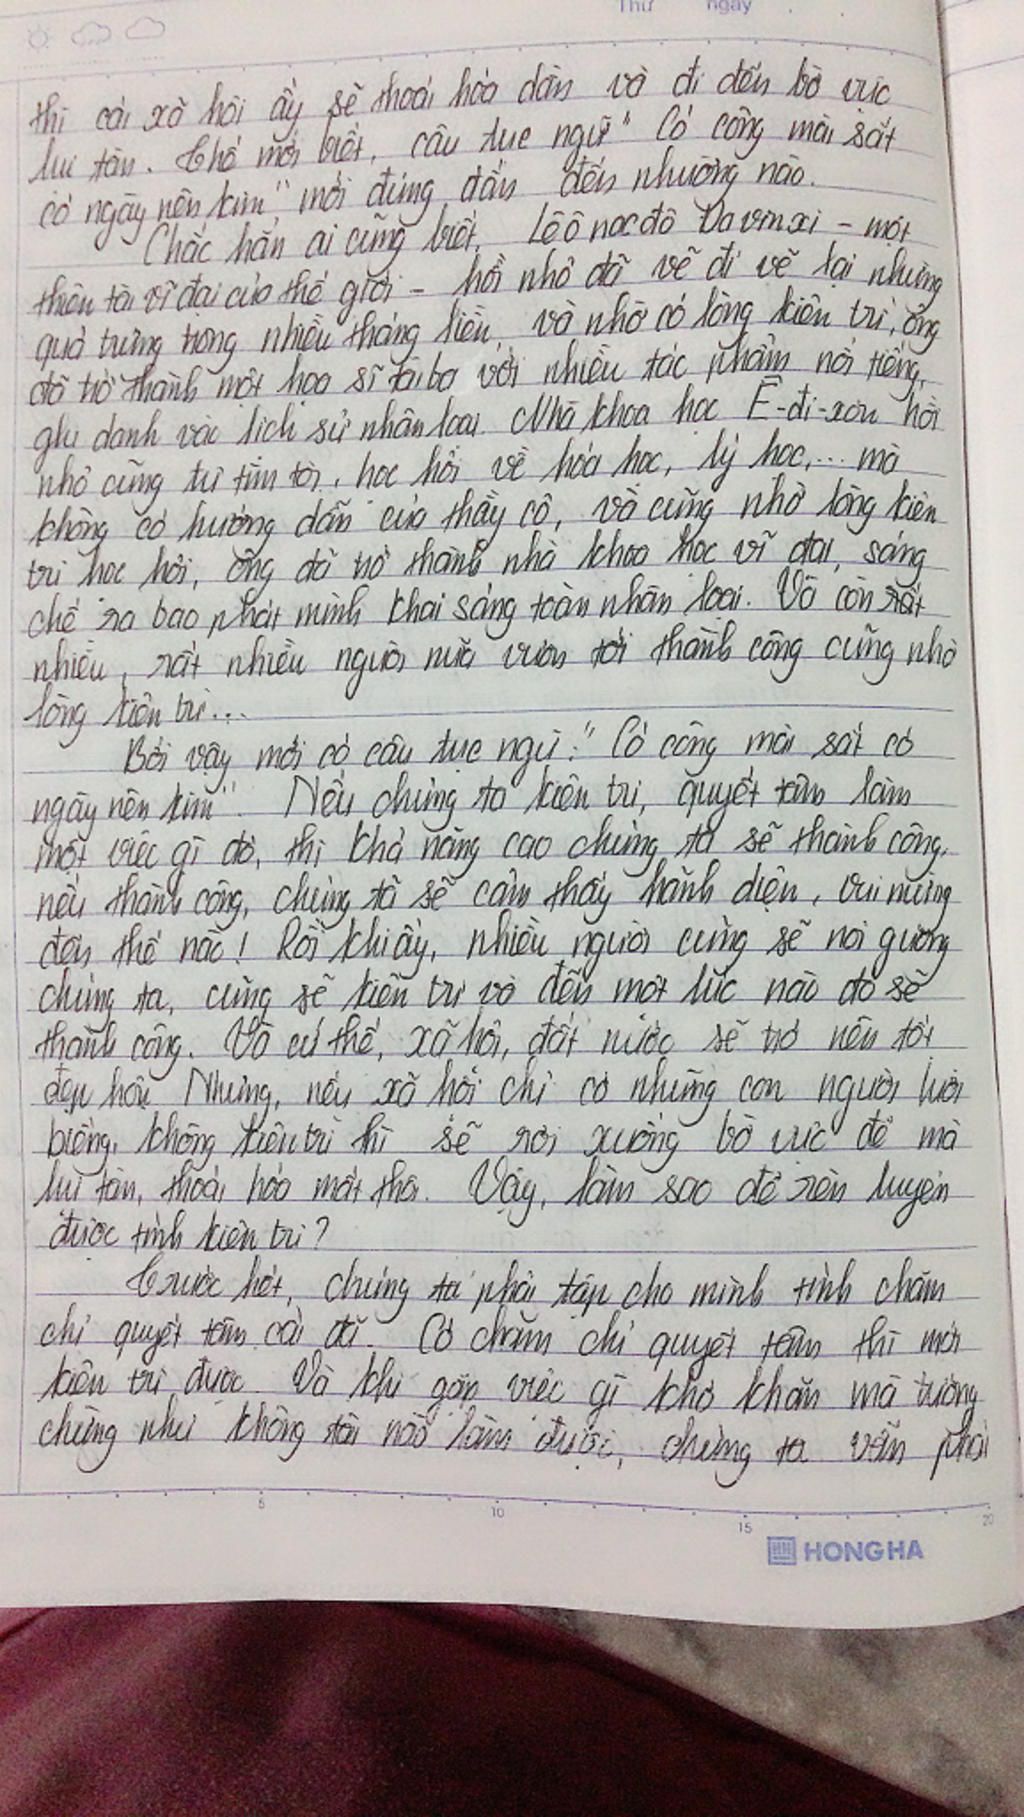 Thứ ngày
thì cái xã hội ấy sẽ thoái hóa dần và đi đến bờ vực
lụi tàn. Thế mới biết, câu tục ngữ "Có công mài sắt
có ngày nên kim" mới đúng đắn đến nhường nào.
Chắc hẳn ai cũng biết, Lêônacđô Đavinxi - một
thiên tài vĩ đại của thế giới - hồi nhỏ đã vẽ đi vẽ lại những
quả trứng trong nhiều tháng liền, và nhờ có lòng kiên trì, ông
đã trở thành một họa sĩ tài ba với nhiều tác phẩm nổi tiếng,
ghi danh vào lịch sử nhân loại. Nhà khoa học Ê-đi-xơn hồi
nhỏ cũng tự tìm tòi, học hỏi về hóa học, lý học,... mà
không có hướng dẫn của thầy cô, và cũng nhờ lòng kiên
trì học hỏi, ông đã trở thành nhà khoa học vĩ đại, sáng
chế ra bao phát minh khai sáng toàn nhân loại. Và còn rất
nhiều, rất nhiều người nữa vươn tới thành công cũng nhờ
lòng kiên trì...
Bởi vậy mới có câu tục ngữ: "Có công mài sắt có
ngày nên kim". Nếu chúng ta kiên trì, quyết tâm làm
một việc gì đó, thì khả năng cao chúng ta sẽ thành công,
nếu thành công, chúng ta sẽ cảm thấy hãnh diện, vui mừng
đến thế nào! Rồi khi ấy, nhiều người cũng sẽ noi gương
chúng ta, cũng sẽ kiên trì và đến một lúc nào đó sẽ
thành công. Và cứ thế, xã hội, đất nước sẽ trở nên tốt
đẹp hơn. Nhưng, nếu xã hội chỉ có những con người lười
biếng, không kiên trì thì sẽ rơi xuống bờ vực để mà
lụi tàn, thoái hóa mất thôi. Vậy, làm sao để rèn luyện
được tính kiên trì?
Trước hết, chúng ta phải tập cho mình tính chăm
chỉ quyết tâm cái đã. Có chăm chỉ quyết tâm thì mới
kiên trì được. Và khi gặp việc gì khó khăn mà tưởng
chừng như không tài nào làm được, chúng ta vẫn phải
5 10 15 20
HONG HA